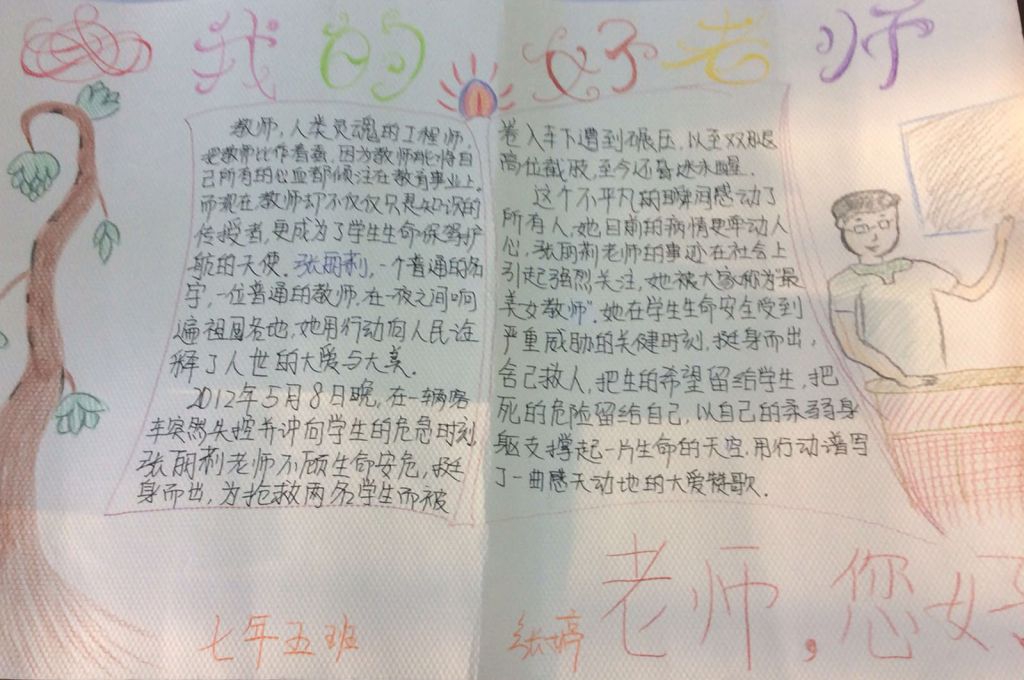 我的好老师
教师,人类灵魂的工程师,
把教师比作春蚕,因为教师能将自
己所有的心血都倾注在教育事业上。
而现在教师却不仅仅只是知识的
传授者,更成为了学生生命保驾护
航的天使.张丽莉,一个普通的名
字,一位普通的教师.在一夜之间响
遍祖国各地,她用行动向人民诠
释了人世的大爱与大美.
2012年5月8日晚,在一辆客
车突然失控并冲向学生的危急时刻
张丽莉老师不顾生命安危,挺
身而出,为抢救两名学生而被
卷入车下遭到碾压,以至双腿
高位截肢,至今还昏迷未醒.
这个不平凡的瞬间感动了
所有人,她目前的病情更牵动人
心,张丽莉老师的事迹在社会上
引起强烈关注,她被大家称为"最
美女教师".她在学生生命安全受到
严重威胁的关键时刻,挺身而出,
舍己救人,把生的希望留给学生,把
死的危险留给自己,以自己的柔弱身
躯支撑起一片生命的天空,用行动谱写
了一曲感天动地的大爱赞歌.
老师,您好
七年五班 张婷